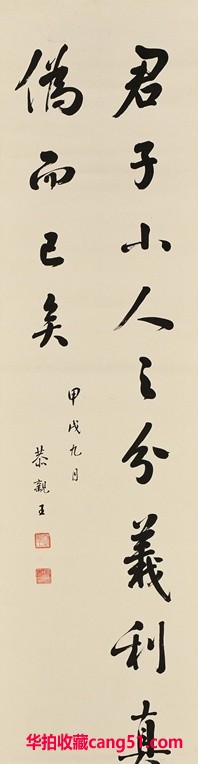 君子小人之分義利真
偽而已矣
甲戌九月
恭親王
华拍收藏cang51.com